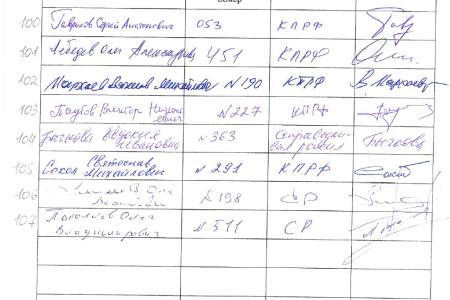 номер
100 Гаврилов Сергей Анатольевич 053 КПРФ
101 Лебедев Олег Александрович 451 КПРФ
102 Мархаев Вячеслав Михайлович N 190 КПРФ В. Мархаев
103 Паутов Виктор Николаевич N 227 КПРФ
104 Бычкова Евдокия Ивановна N 363 Справедливая Россия Бычкова
105 Сокол Святослав Михайлович N 291 КПРФ
106 N 198 СР
107 Олег Владимирович N 511 СР